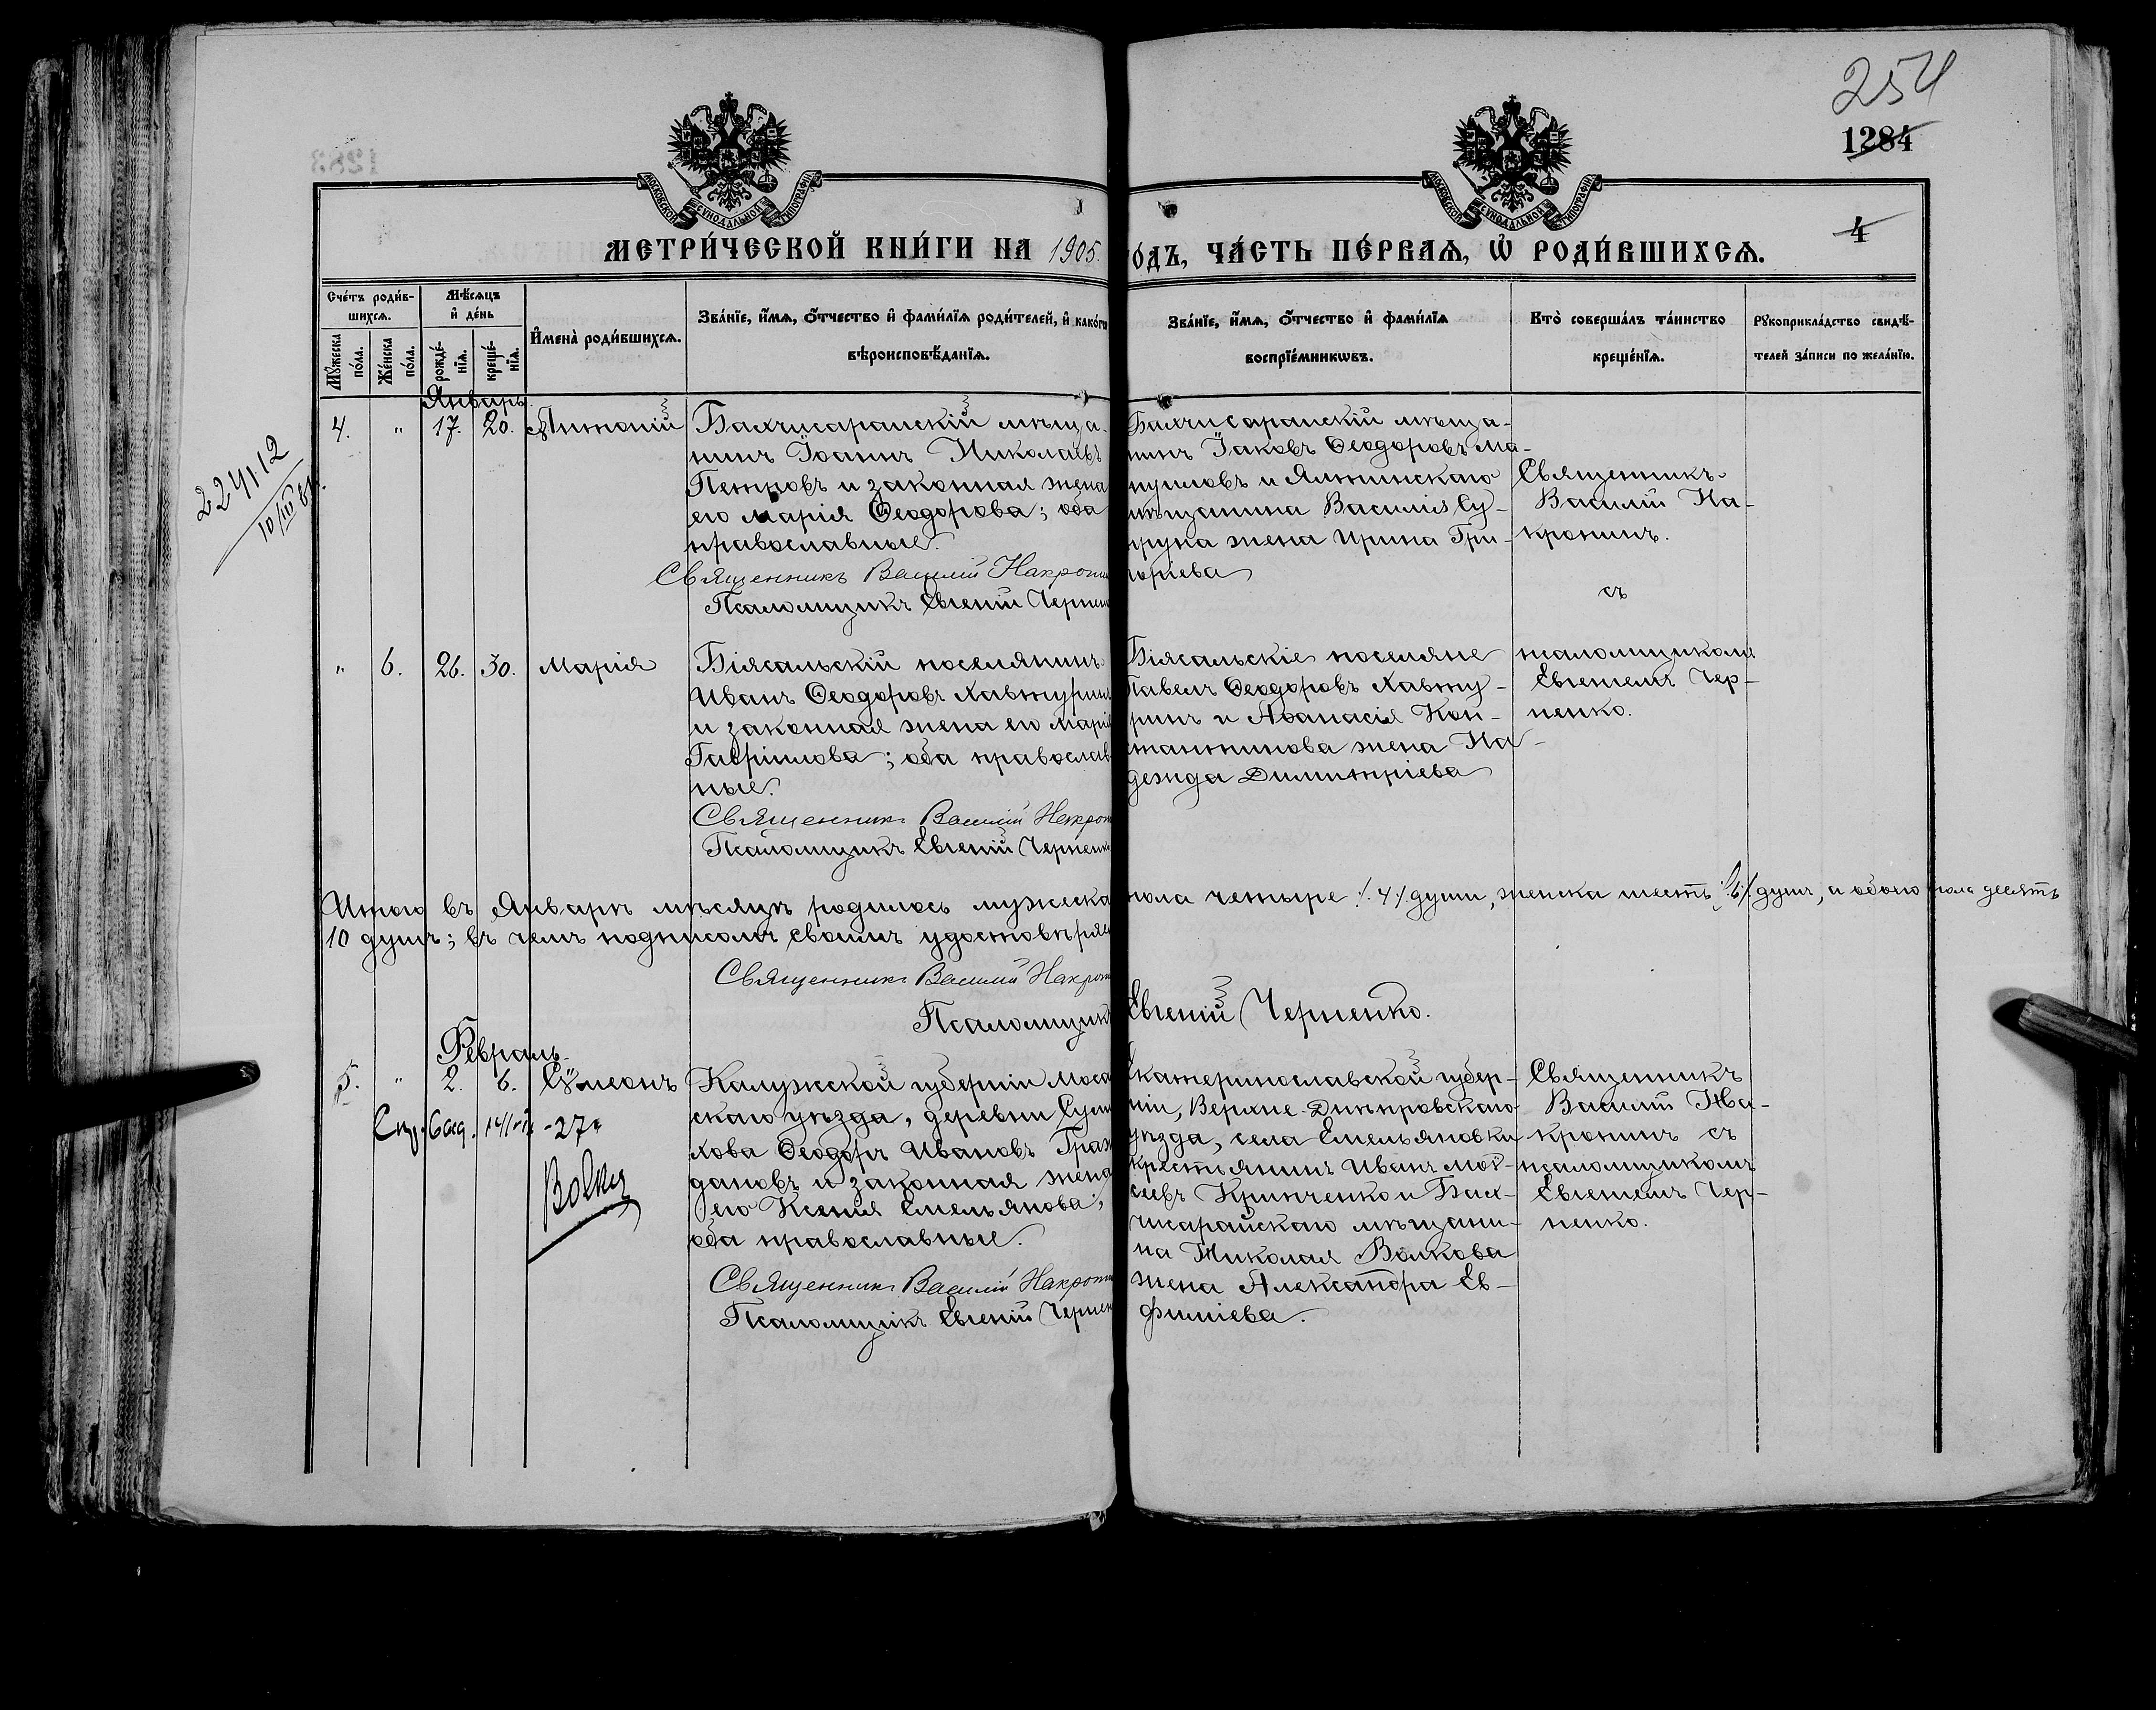 254
1284
4
МОСКОВСКОЙ СѴНОДАЛЬНОЙ ТИПОГРАФІИ
МОСКОВСКОЙ СѴНОДАЛЬНОЙ ТИПОГРАФІИ
МЕТРИ́ЧЕСКОЙ КНИ́ГИ НА 1905.
ГО́ДЪ, ЧА́СТЬ ПЕ́РВАѦ, Ѡ҆ РОДИ́ВШИХСѦ.
Сче́тъ роди́в-
шихсѧ.
Мꙋ́жеска по́ла.
Же́нска по́ла.
Мѣ́сѧцъ
и҆ де́нь
рожде́-нїѧ.
креще́-нїѧ.
И҆мена̀ роди́вшихсѧ.
Зва́нїе, и҆́мѧ, ѻ҆́тчество и҆ фами́лїѧ роди́телей, и҆ како́гѡ
вѣроисповѣ́данїѧ.
Зва́нїе, и҆́мѧ, ѻ҆́тчество и҆ фами́лїѧ
воспрїе́мникѡвъ.
Кто̀ соверша́лъ та́инство
креще́нїѧ.
Рꙋкоприкла́дство свидѣ́-
телей за́писи по жела́нїю.
Январь.
4. " 17. 20. Антоній
Бахчисарайскій мѣща-
нинъ Іоаннъ Николаевъ
Петровъ и законная жена
его Марія Ѳеодорова; оба
православные.
Священникъ Василій Накропин
Псаломщикъ Евгеній Чернен
Бахчисарайскій мѣща-
нинъ Іаковъ Ѳеодоровъ Ма-
нуиловъ и Ялтинскаго
мѣщанина Василія Су-
прука жена Ирина Гри-
горіева
Священникъ
Василій На-
кропинъ.
съ
224112
10/III 61.
" 6. 26. 30. Марія
Біясальскій поселянинъ
Иванъ Ѳеодоровъ Хавжуринъ
и законная жена его Марія
Гавріилова; оба православ
ные.
Священникъ Василій Накроп
Псаломщикъ Евгеній Черненк
Біясальскіе поселяне
Павелъ Ѳеодоровъ Хавжу-
ринъ и Аѳанасія Кон-
стантинова жена На-
дежда Димитріева
псаломщикомъ
Евгеніемъ Чер-
ненко.
Итого въ Январѣ мѣсяцѣ родилось мужеска пола четыре ./. 4 ./. души, женска шесть ./. 6 ./. душъ, и обоего пола десять
10 душъ; въ чемъ подписомъ своимъ удостовѣряе
Священникъ Василій Накроп
Псаломщикъ Евгеній Черненко.
Февраль.
5. " 2. 6. Сѵмеонъ
-27"
Калужской губерніи Моса
скаго уѣзда, деревни
хова Ѳеодоръ Ивановъ Граж
дановъ и законная жена
его Ксенія Емельянова;
оба православные.
Священникъ Василій Накропи
Псаломщикъ Евгеній Чернен
Екатеринославской губер-
ніи, Верхне-Днѣпровскаго
уѣзда, села Емельяновки
крестьянинъ Иванъ Мої-
сеевъ Кринченко и Бах-
чисарайскаго мѣщани-
на Николая Волкова
жена Александра Ев-
фиміева.
Священникъ
Василій На-
кропинъ съ
псаломщикомъ
Евгеніемъ Чер-
ненко.